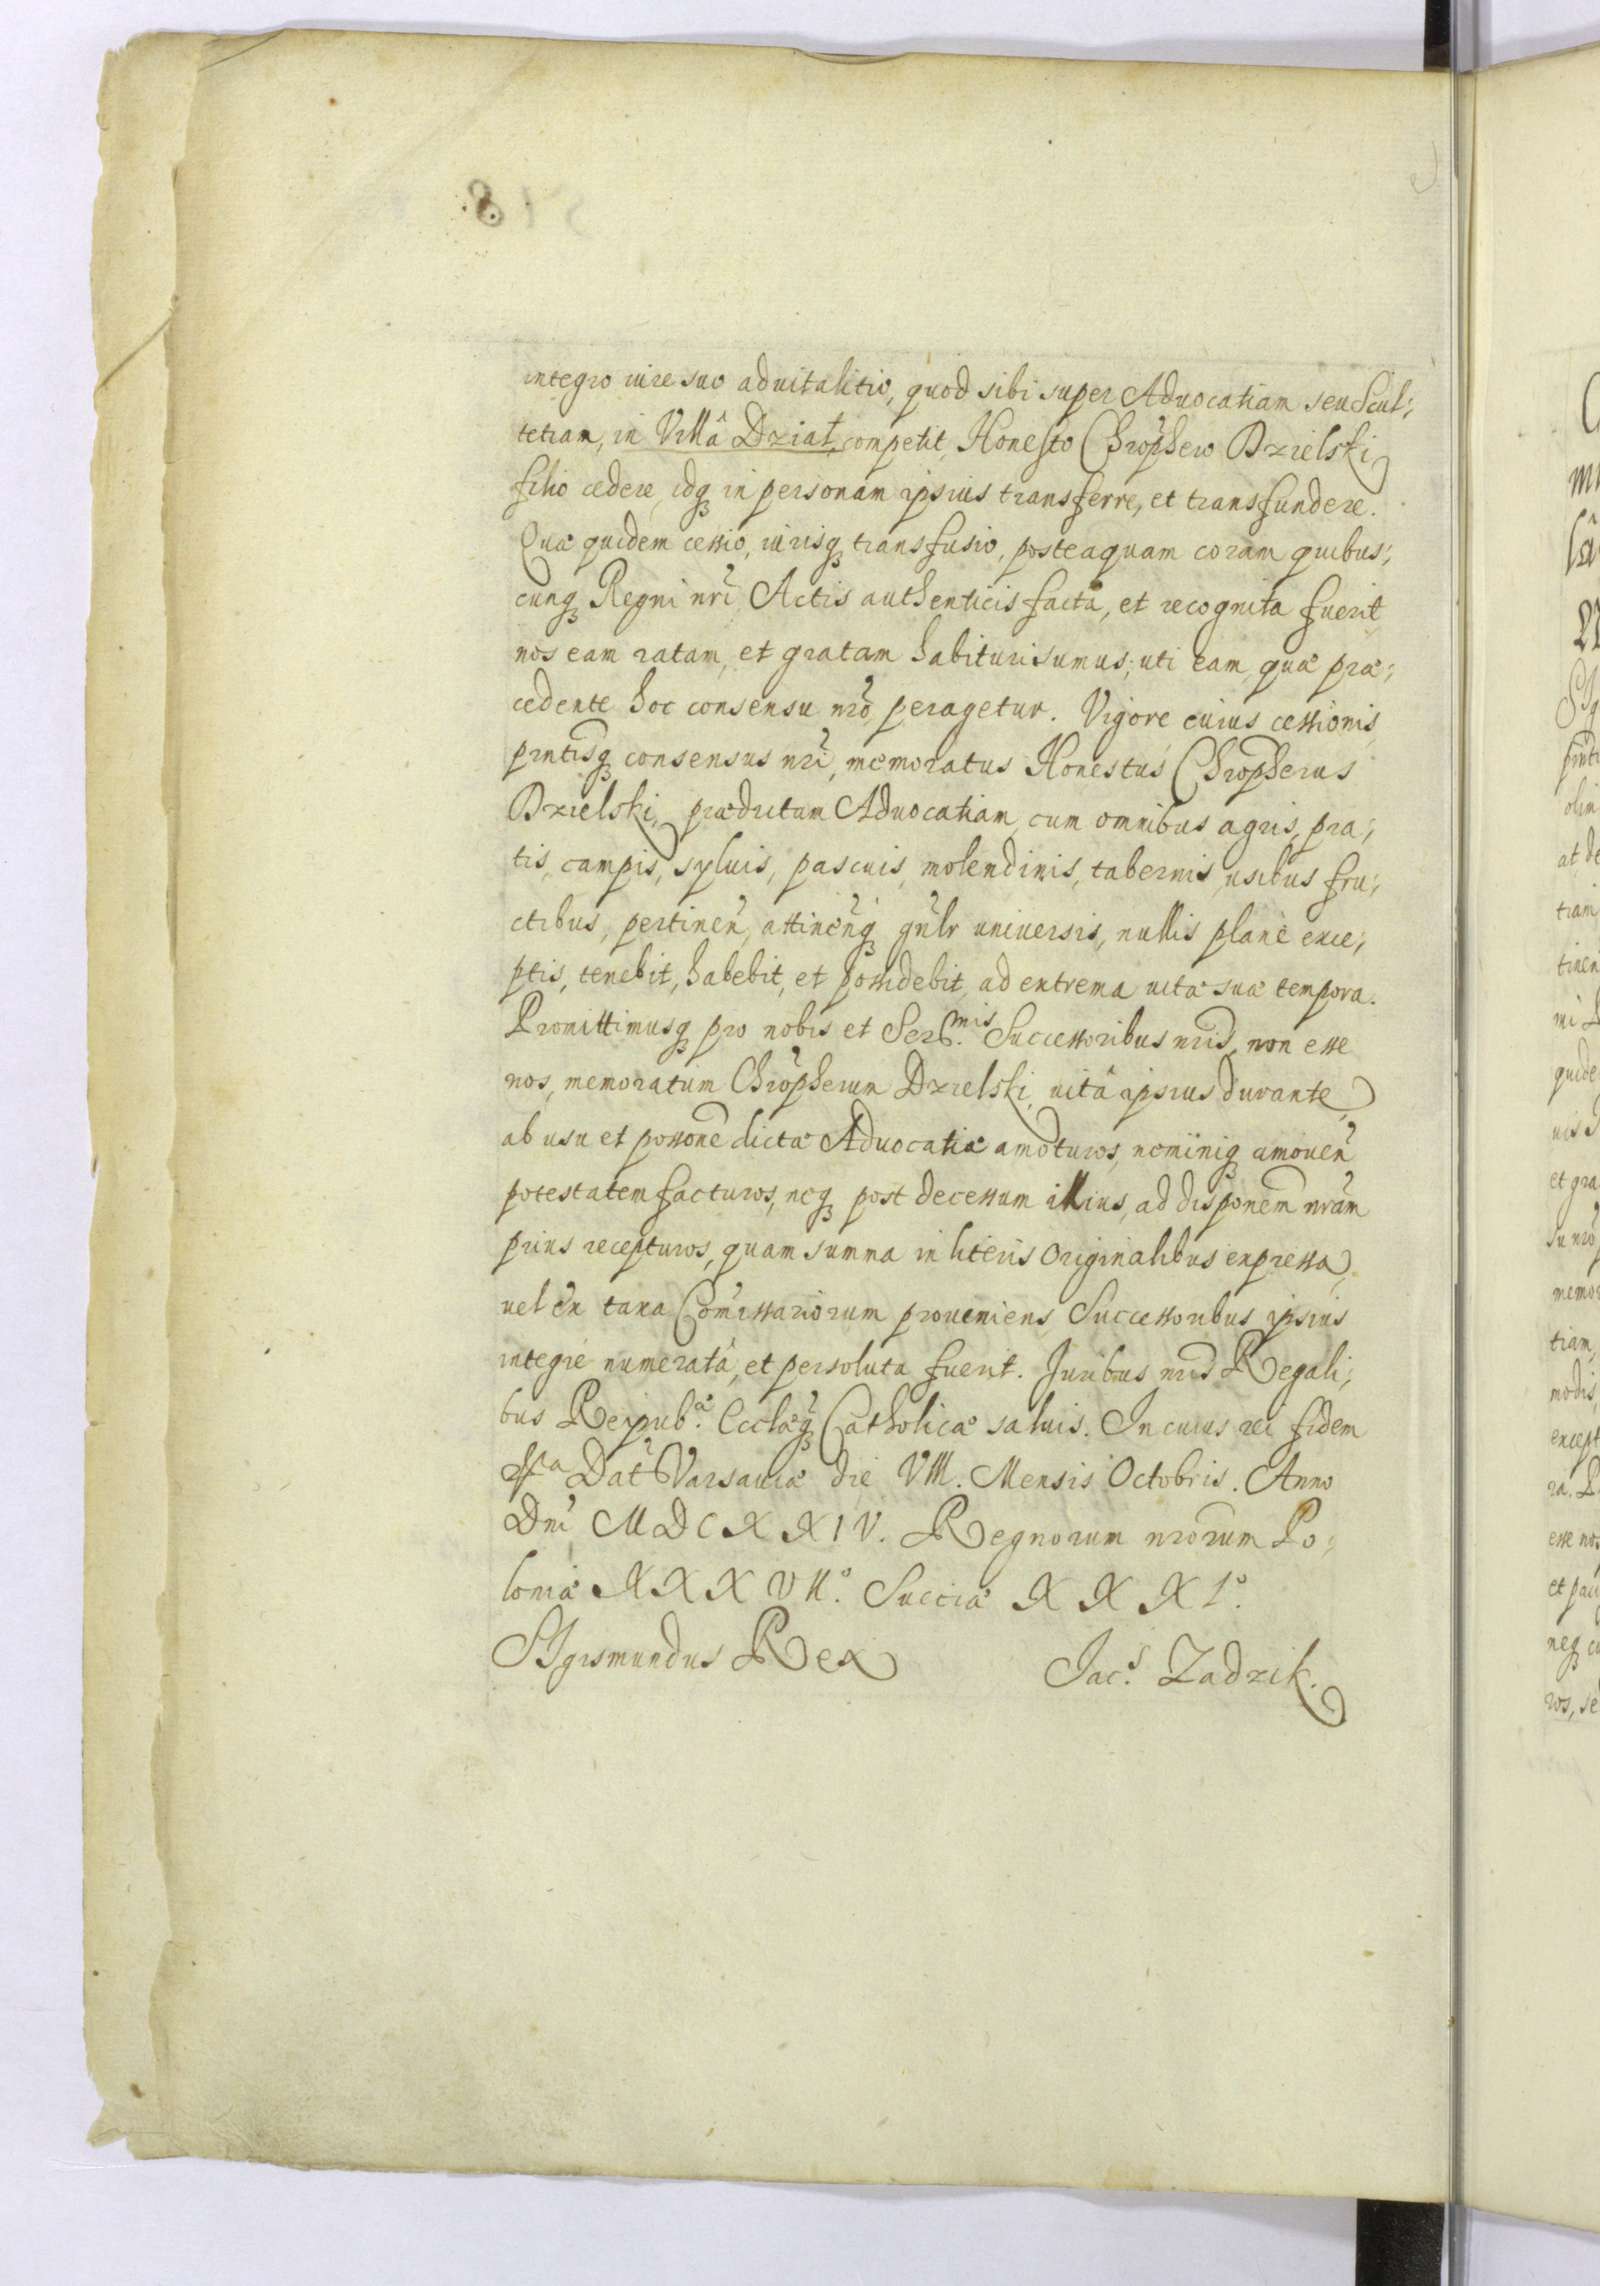 .8.
integro iure suo aduitalitio, quod sibi super Aduocatiam seu Scul;
tetiam, in Villâ Dziat, competit, Honesto Chrõphero Dzielski
filio cedere, idq in personam ipsius transferre, et transfundere.
Quæ quidem cessio, iurisq transfusio, posteaquam coram quibus;
cunq Regni nrĩ Actis authenticis facta, et recognita fuerit,
nos eam ratam, et gratam habituri sumus; uti eam, quæ præ;
cedente hoc consensu nrõ, peragetur. Vigore cuius cessionis,
pntisq consensus nrĩ, memoratus Honestus Chrõpherus
Dzielski, prædictam Aduocatiam, cum omnibus agris, pra;
tis, campis, syluis, pascuis, molendinis, tabernis, usibus fru;
ctibus, pertineñ, attineñq gñlr uniuersis, nullis planè exce;
ptis, tenebit, habebit, et possidebit, ad extrema uitæ suæ tempora.
Promittimusq pro nobis et Ser.mis Successoribus nris, non esse
nos, memoratum Chrõpherum Dzielski, uitâ ipsius durante,
ab usu et possone dictæ Aduocatiæ amoturos, neminiq amoueñ
potestatem facturos, neq post decessum illius, ad disponem nrãm
prius recepturos, quam summa in literis Originalibus expressa,
uel ex taxa Comissariorum proueniens, Successoribus ipsius
integrè numerata, et persoluta fuerit. Juribus nris Regali;
bus Reipub.æ Ecclæq Catholicæ saluis. In cuius rei fidem
Dat Varsauiæ die VIII. Mensis Octobris. Anno
Dnĩ MDCXXIV. Regnorum nrorum Po;
loniæ XXXVII.º Sueciæ XXXI.º
SIgismundus Rex
Jac.s Zadzik.